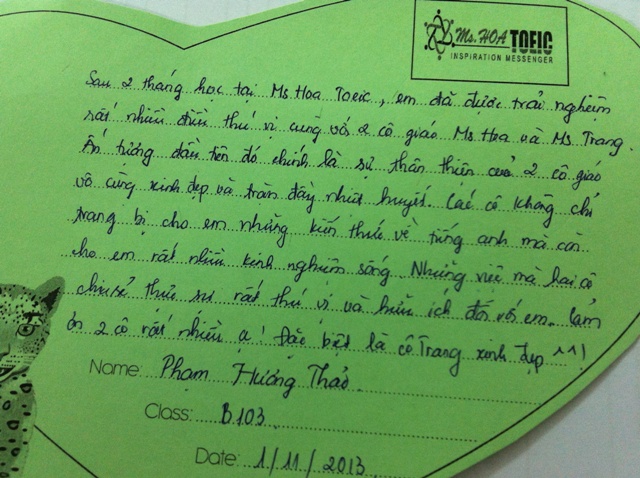 Ms. HOA TOEIC
INSPIRATION MESSENGER
Sau 2 tháng học tại Ms Hoa Toeic, em đã được trải nghiệm
rất nhiều điều thú vị cùng với 2 cô giáo Ms Hoa và Ms Trang.
Ấn tượng đầu tiên đó chính là sự thân thiện của 2 cô giáo
vô cùng xinh đẹp và tràn đầy nhiệt huyết. Các cô không chỉ
trang bị cho em những kiến thức về tiếng anh mà còn
cho em rất nhiều kinh nghiệm sống. Những việc mà hai cô
chia sẻ thực sự rất thú vị và hữu ích đối với em. Cảm
ơn 2 cô rất nhiều ạ! Đặc biệt là cô Trang xinh đẹp ^^!
Name: Phạm Hương Thảo
Class: B103
Date: 1/11/2013